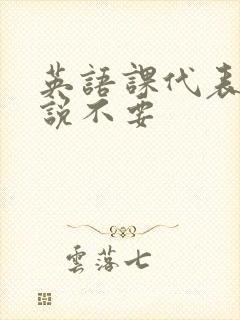 英語課代表
說不要
雲落七